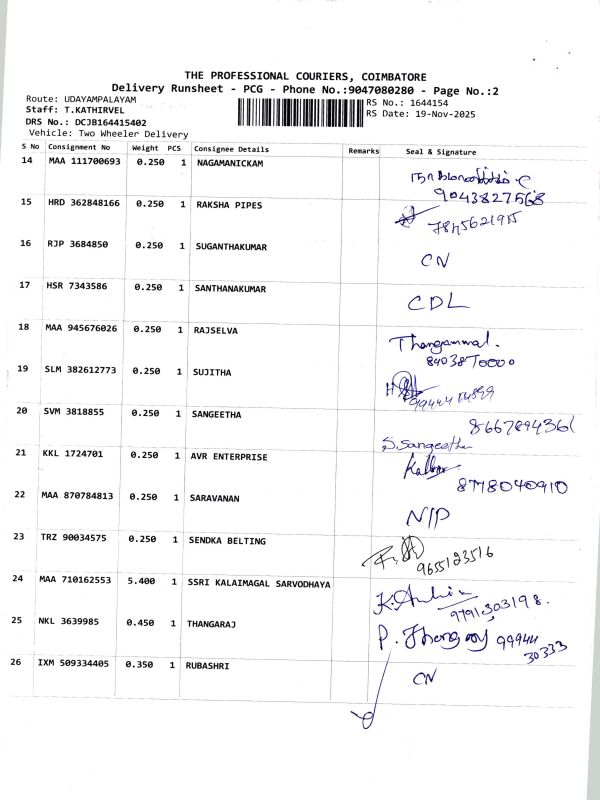 THE PROFESSIONAL COURIERS, COIMBATORE
Delivery Runsheet - PCG - Phone No.:9047080280 - Page No.:2
Route: UDAYAMPALAYAM
Staff: T.KATHIRVEL
DRS No.: DCJB164415402
Vehicle: Two Wheeler Delivery
RS No.: 1644154
RS Date: 19-Nov-2025
S No Consignment No Weight PCS Consignee Details Remarks Seal & Signature
14 MAA 111700693 0.250 1 NAGAMANICKAM
9043827568
15 HRD 362848166 0.250 1 RAKSHA PIPES
7845621915
16 RJP 3684850 0.250 1 SUGANTHAKUMAR CN
17 HSR 7343586 0.250 1 SANTHANAKUMAR CDL
18 MAA 945676026 0.250 1 RAJSELVA Thangammal.
8403870000
19 SLM 382612773 0.250 1 SUJITHA
20 SVM 3818855 0.250 1 SANGEETHA 8667894361
S.Sangeetha
21 KKL 1724701 0.250 1 AVR ENTERPRISE
8778040910
22 MAA 870784813 0.250 1 SARAVANAN N/P
23 TRZ 90034575 0.250 1 SENDKA BELTING
9655123516
24 MAA 710162553 5.400 1 SSRI KALAIMAGAL SARVODHAYA
9791303198.
25 NKL 3639985 0.450 1 THANGARAJ P. Thangaraj 99944
30333
26 IXM 509334405 0.350 1 RUBASHRI CN